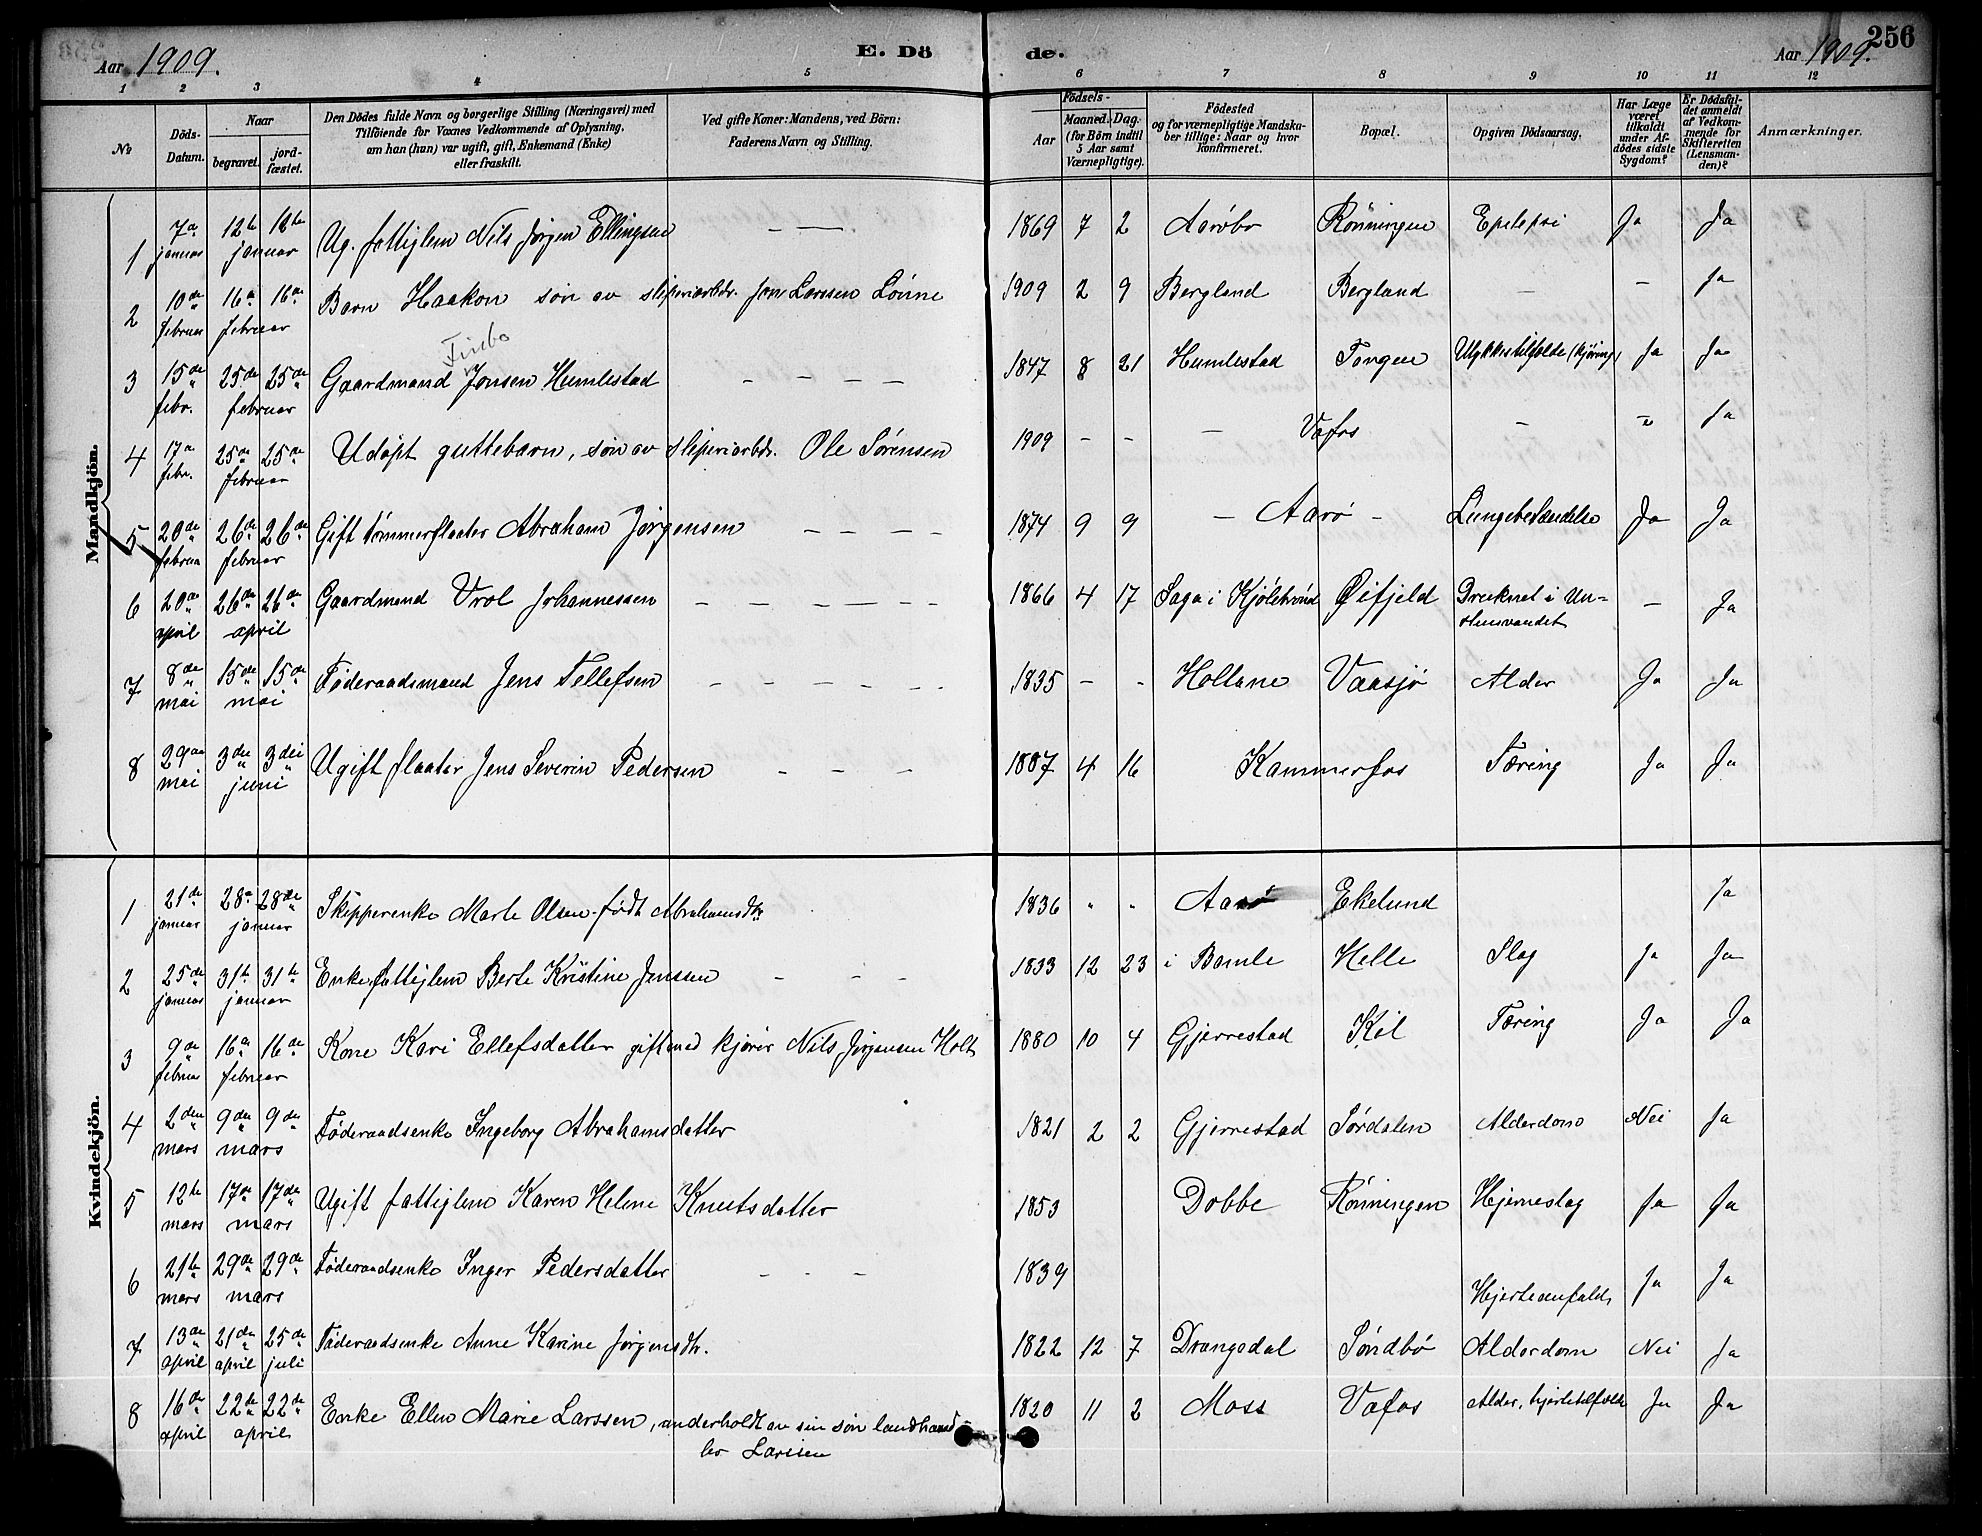 Aar 1909. E. Dö de. Aar 1909. 256
1 2 3 4 5 6 7 8 9 10 11 12
No
Döds-Datum.
Naar
begravet. jord-fæstet.
Den Dödes fulde Navn og borgerlige Stilling (Næringsvei) med
Tilföiende for Voxnes Vedkommende af Oplysning,
om han (hun) var ugift, gift, Enkemand (Enke)
eller fraskilt.
Ved gifte Koner: Mandens, ved Börn:
Faderens Navn og Stilling.
Födsels-
Aar
Maaned. Dag.
(for Börn indtil
5 Aar samt
Værnepligtige).
Födested
og for værnepligtige Mandska-
ber tillige: Naar og hvor
konfirmeret.
Bopæl.
Opgiven Dödsaarsag.
Har Læge
været
tilkaldt
under Af-
dödes sidste
Sygdom?
Er Dödsfal-
det anmeldt
af Vedkom-
mende for
Skifteretten
(Lensman-
den)?
Anmærkninger.
Mandkjön.
1 7de januar 12te 12te januar Ug. fattiglem Nils Jørgen Ellingsen — — 1869 7 2 Aarøbo Rønningen Epilepsi Ja Ja
2 10de februar 16de 16de februar Barn Haakon søn av sliperiarbdr. Jon Larssen Lønne 1909 2 9 Bergland Bergland — — Ja
3 15de febr. 25de 25de februar Gaardmand Jonsen Humlestad — — — — 1847 8 21 Humlestad Tangen Ulykkestilfælde (kjøring) Ja Ja
4 17de febr. 25de 25de februar Udøpt guttebarn, søn av sliperiarbdr. Ole Sørensen 1909 — — — Vafos — " Ja
5 20de februar 26de 26de februar Gift tømmerfløater Abraham Jørgensen — — — — 1874 9 9 — Aarø — Lungebetændelse Ja Ja
6 20de april 26de 26de april Gaardmand Vrol Johannessen — — — — — — 1866 4 17 Saga i Kjølebrønd Øifjeld Druknet i
— Ja
7 8de mai 15de 15de mai Føderaadsmand Jens Tellefsen — — — — — — 1835 — - Hollane Vaasjø Alder Ja Ja
8 29de mai 3die 3die juni Ugift fløater Jens Severin Pedersen — — — 1887 4 16 Kammerfos Tæring Ja Ja
Kvindekjön.
1 21de januar 28de 28de januar Skipperenke Marte Olsen født Abrahamsdtr 1836 " " Aarø Ekelund Ja
2 25de januar 31te 31te januar Enke, fattiglem Berte Kristine Jenssen - - - 1833 12 23 i Bamle Helle Slag Ja Ja
3 9de februar 16de 16de februar Kone Kari Ellefsdatter gift med kjører Nils Jørgensen Holt 1880 10 4 Gjerrestad Kil Tæring Ja Ja
4 2den mars 9de 9de mars Føderaadsenke Ingeborg Abrahamsdatter 1821 2 2 Gjerrestad Sørdalen Alderdom Nei Ja
5 12te mars 17de 17de mars Ugift fattiglem Karen Helene Knutsdatter 1853 Dobbe Rønningen Hjerneslag Ja Ja
6 21te mars 29de 29de mars Føderaadsenke Inger Pedersdatter - - - 1839 Hjerteanfald Ja Ja
7 13de april 21de april 25de juli Føderaadsenke Anne Karine Jørgensdtr. 1822 12 7 Drangedal Søndbø Alderdom Nei Ja
8 16de april 22de 22de april Enke Ellen Marie Larssen, underholdt av sin søn landhand-
ler Larssen 1820 11 2 Moss Vafos Alder, hjertetilfælde Ja Ja